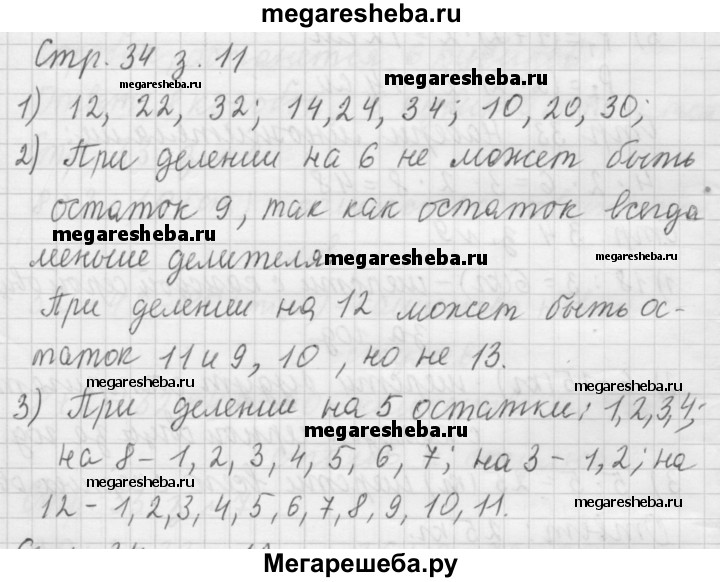 megaresheba.ru
Стр. 34 з. 11
megaresheba.ru
megaresheba.ru
1) 12, 22, 32; 14, 24, 34; 10, 20, 30;
2) При делении на 6 не может быть
остаток 9, так как остаток всегда
megaresheba.ru
меньше делителя
megaresheba.ru
megaresheba.ru
При делении на 12 может быть ос-
таток 11 и 9, 10, но не 13.
megaresheba.ru
megaresheba.ru
3) При делении на 5 остатки: 1, 2, 3, 4;
megaresheba.ru
на 8 – 1, 2, 3, 4, 5, 6, 7; на 3 – 1, 2; на
12 – 1, 2, 3, 4, 5, 6, 7, 8, 9, 10, 11.
megaresheba.ru
megaresheba.ru
Мегарешеба.ру